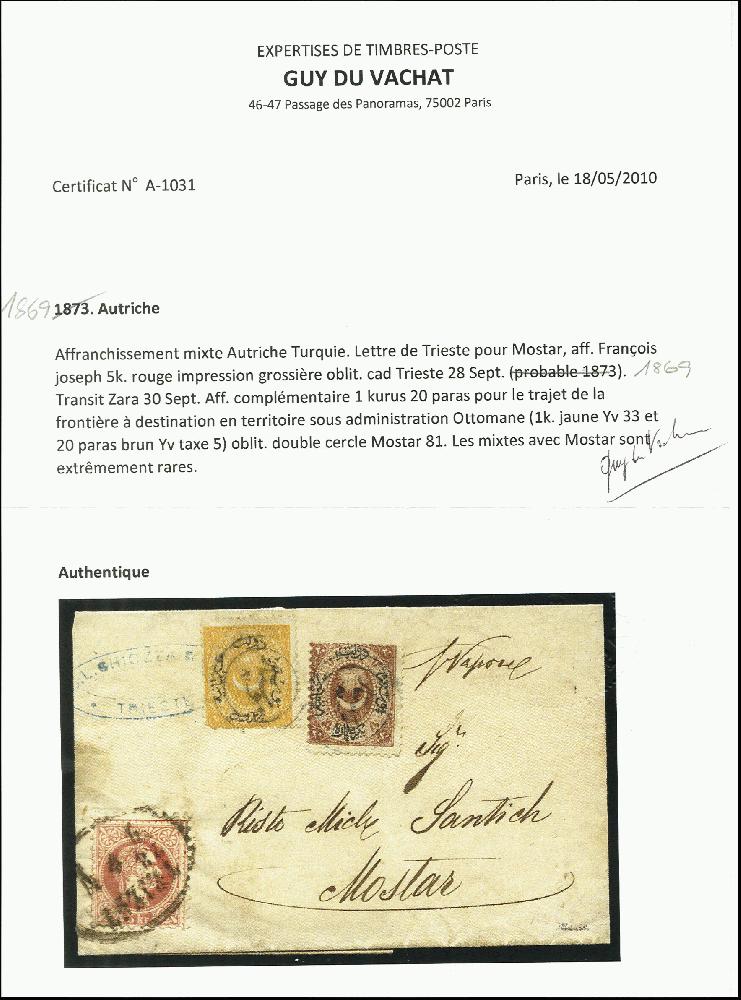 EXPERTISES DE TIMBRES-POSTE
GUY DU VACHAT
46-47 Passage des Panoramas, 75002 Paris
Certificat N° A-1031
Paris, le 18/05/2010
1869 1873. Autriche
Affranchissement mixte Autriche Turquie. Lettre de Trieste pour Mostar, aff. François
joseph 5k. rouge impression grossière oblit. cad Trieste 28 Sept. (probable 1873). 1869
Transit Zara 30 Sept. Aff. complémentaire 1 kurus 20 paras pour le trajet de la
frontière à destination en territoire sous administration Ottomane (1k. jaune Yv 33 et
20 paras brun Yv taxe 5) oblit. double cercle Mostar 81. Les mixtes avec Mostar sont
extrêmement rares.
Authentique
TRIESTE
Sigr
Risto Santich
Mostar